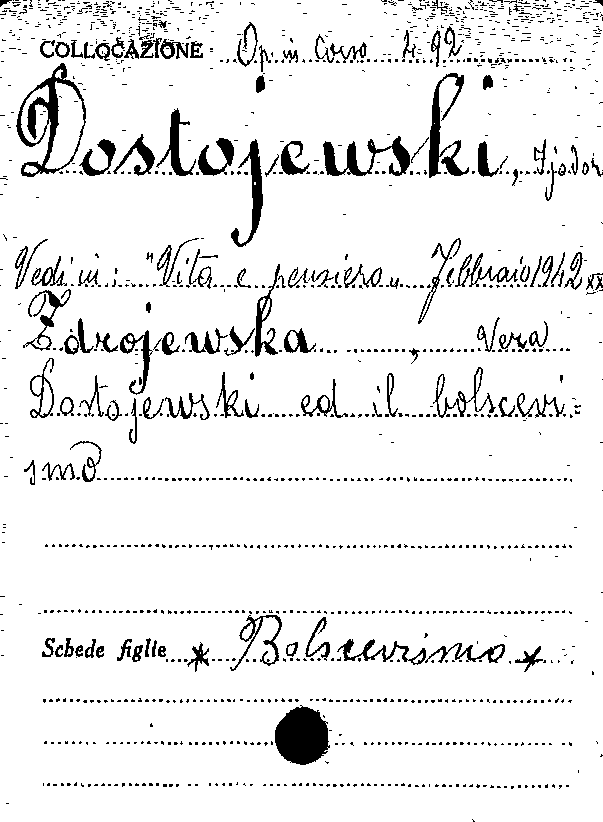 COLLOCAZIONE Op. in Corso 4. 92
Dostojewski, Fjodor
Vedi in: "Vita e pensiero" Febbraio 1942 XX
Zdrojewska, Vera
Dostojewski ed il bolscevi=
smo
Schede figlie * Bolscevismo *